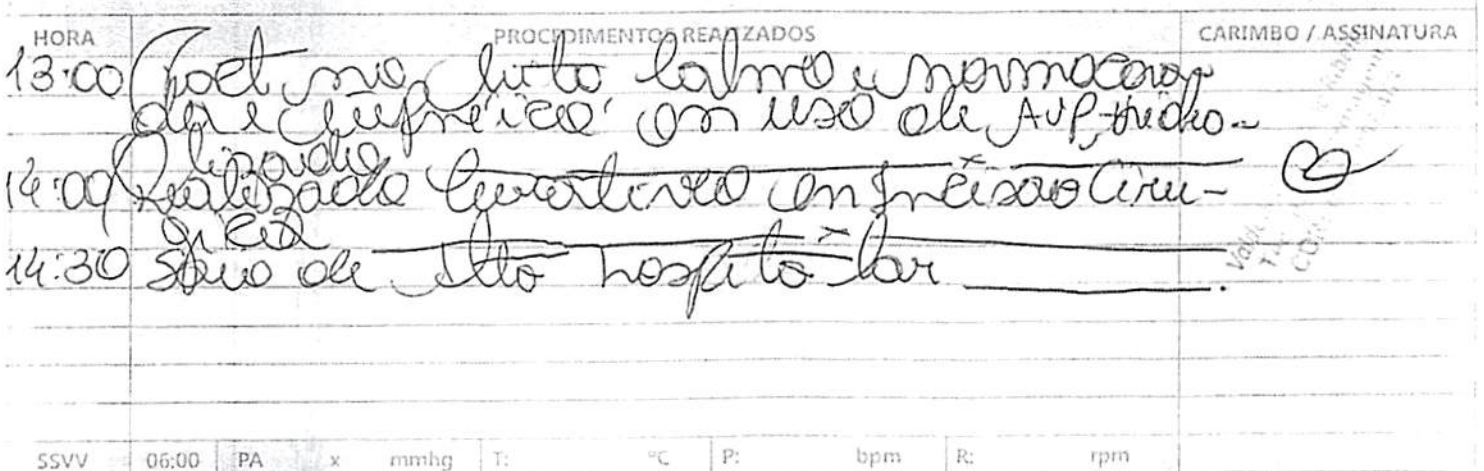 HORA PROCEDIMENTOS REALIZADOS CARIMBO / ASSINATURA
13:00 Pact no leito calmo e normocora
do e eupneico em uso de AVP hidro-
lizado x
14:00 Realizado curativo em incisão cirur-
gica x
14:30 Saiu de alta hospitalar
SSVV 06:00 PA x mmhg T: ºC P: bpm R: rpm